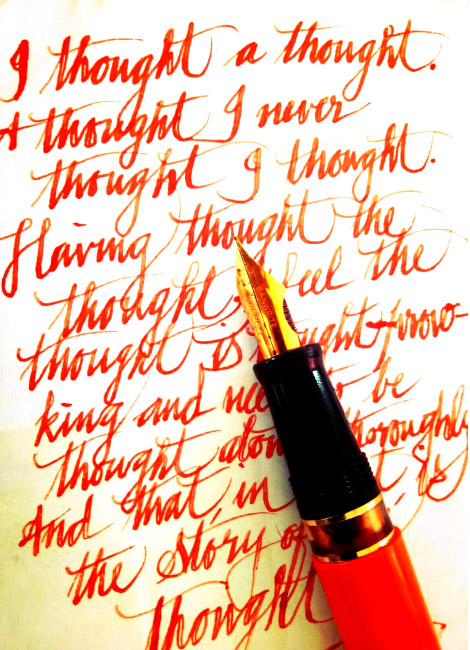 I thought a thought.
A thought I never
thought I thought.
Having thought the
thought, I feel the
thought is thought-provo-
king and to be
thought about thoroughly
And that, in is
the story of
thought